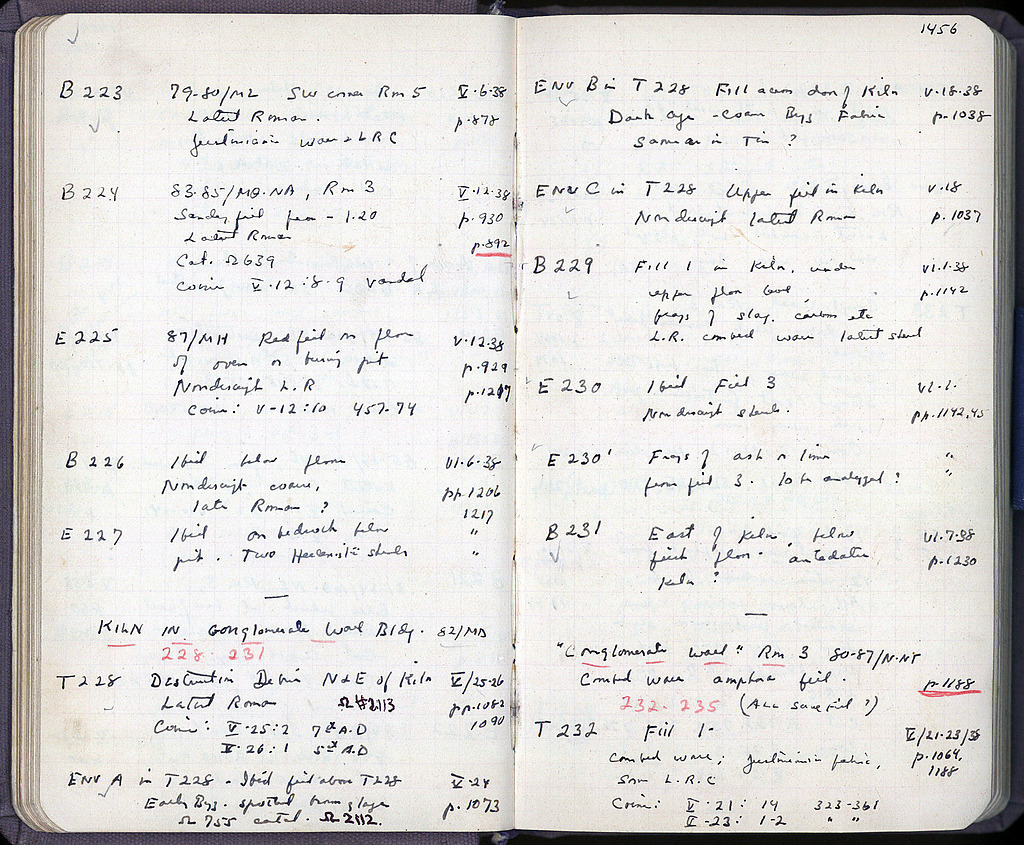 B 223 79-80/M2 SW corner Rm 5 V·6·38
Latest Roman. p. 878
Justinian ware & L R C
B 224 83·85/MΘ·NA, Rm 3 V·12·38
Sandy fill from - 1.20 p. 930
Latest Roman p. 892
Cat. Ω 639
Coins V·12·8·9 Vandal
E 225 87/MH Red fill on floor V·12·38
of oven or firing pit p. 929
Nondescript L.R p. 1217
Coin: V-12:10 457-74
B 226 Ibid below floor VI·6·38
Nondescript coarse, pp. 1206
late Roman ? 1217
E 227 Ibid on bedrock below "
pit. Two Hellenistic sherds "
KILN IN Conglomerate Wall Bldg. 82/MΔ
228-231
T 228 Destruction Debris N & E of Kiln V/25-26
Latest Roman Ω 2113 pp. 1082
Coins: V·25:2 7th A.D 1090
V·26:1 5th A.D
ENV A in T 228 - Ibid fill above T228 V·24
Early Byz. spotted brown glaze p. 1073
Ω 755 catal. Ω 2112.
1456
ENV B in T 228 Fill across door of Kiln V·18·38
Dark Age - Coarse Byz Fabric p. 1038
Same as in Tin ?
ENV C in T 228 Upper fill in kiln V·18
Nondescript latest Roman p. 1037
B 229 Fill 1 in Kiln, under VI·1·38
upper floor level p. 1142
frags of slag, carbon etc
L.R. combed ware latest sherd
E 230 Ibid Fill 3 VI·1·
Nondescript sherds. pp. 1142, 45
E 230' Frags of ash or lime "
from fill 3. to be analyzed ? "
B 231 East of kiln, below VI·7·38
first floor - antedates p. 1230
Kiln ?
"Conglomerate Wall" Rm 3 80-87/N-NΓ
Combed ware amphora fill. p. 1188
232-235 (ALL same fill ?)
T 232 Fill 1- V/21-23/38
Combed ware; Justinian fabric, p. 1064,
Some L.R.C 1188
Coins: V·21: 14 323-361
V-23: 1-2 " "